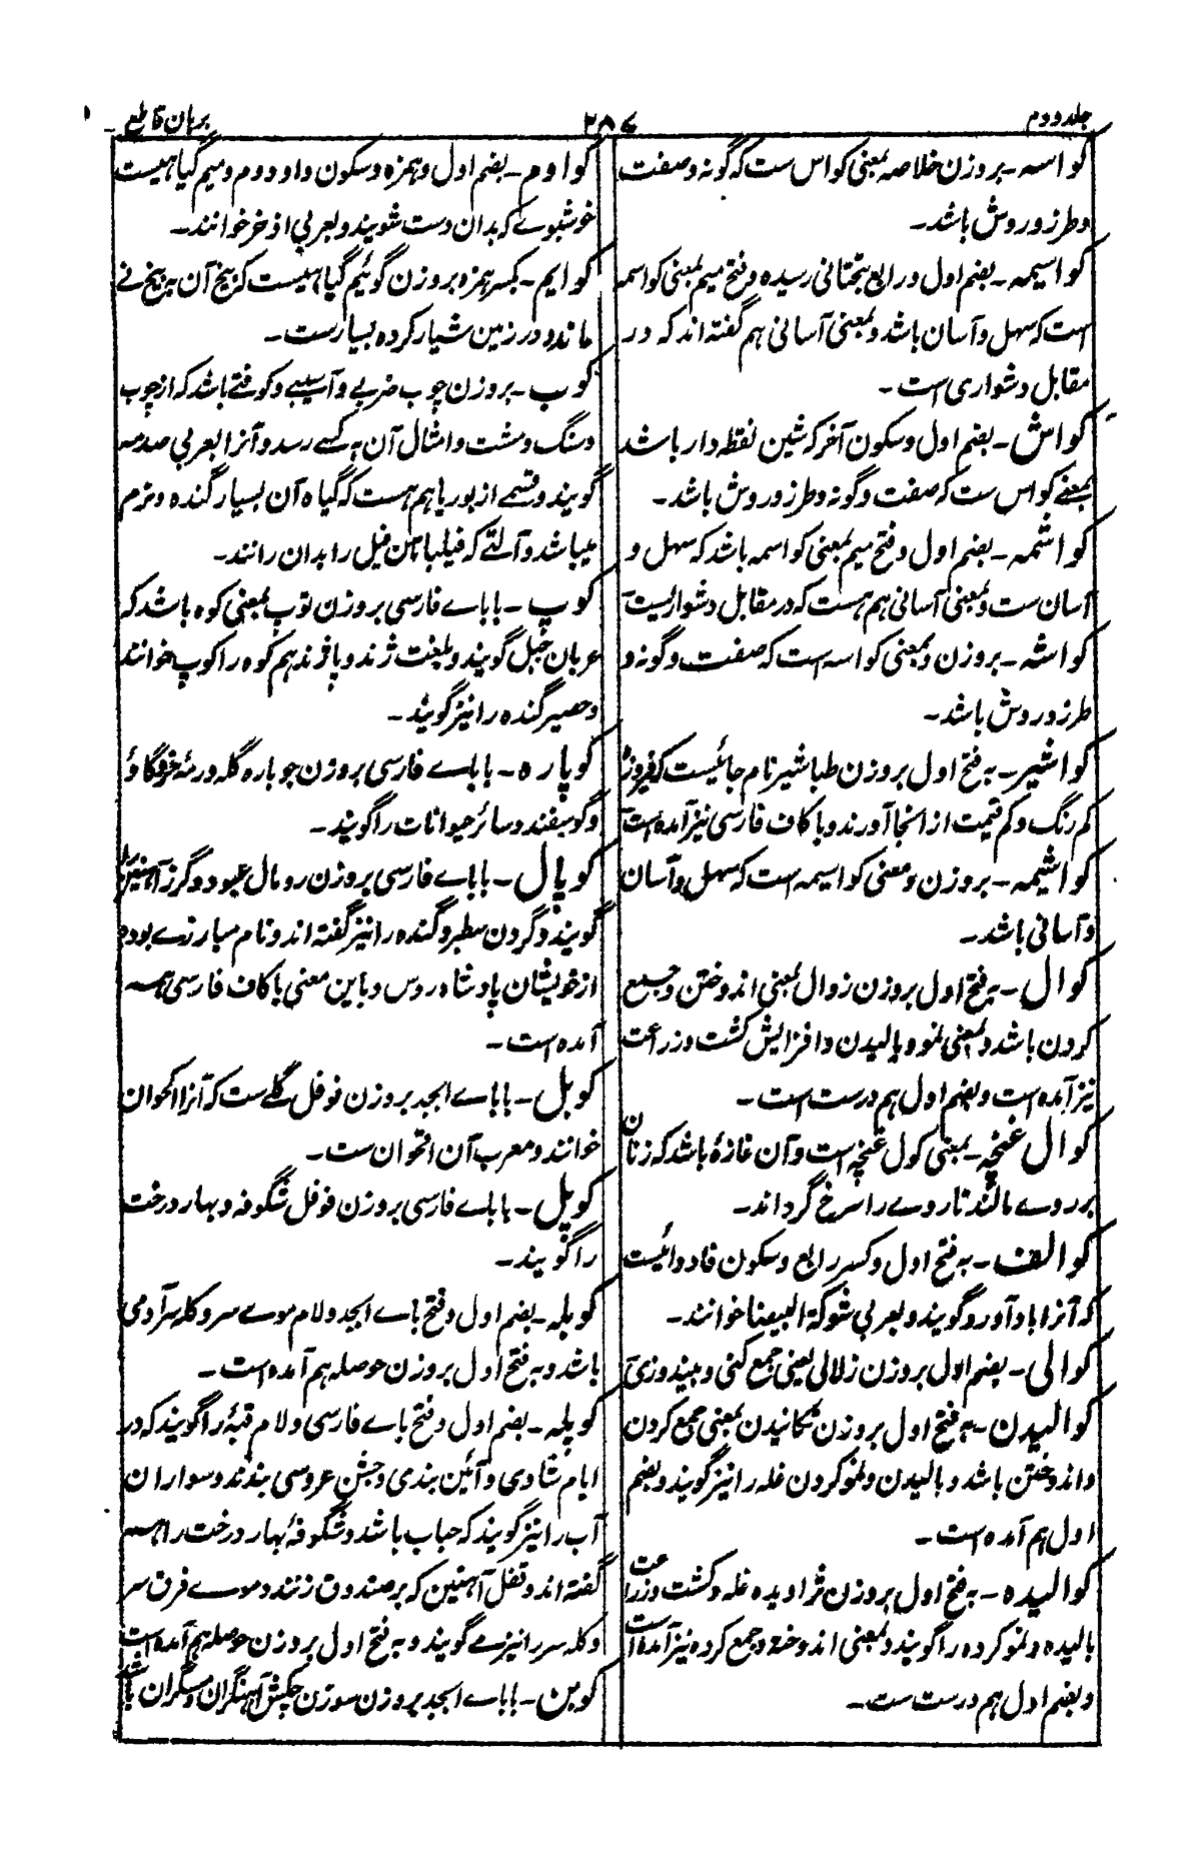 جلد دوم
۲۸۷
برهان قاطع
کواسه ـ بروزن خلاصه بمعنی کواس ست که گونه و صفت
و طرز و روش باشد ـ
کواسیمه ـ بضم اول و رابع بتحتانی رسیده و فتح میم بمعنی کواسمه
است که سهل و آسان باشد و بمعنی آسانی هم گفته اند که در
مقابل دشواری است ـ
کواش ـ بضم اول و سکون آخر که شین نقطه دار باشد
بمعنے کواس ست که صفت و گونه و طرز و روش باشد ـ
کواشمه ـ بضم اول و فتح میم بمعنی کواسمه باشد که سهل و
آسان ست و بمعنی آسانی هم هست که در مقابل دشواریست
کواشه ـ بروزن و بمعنی کواسه است که صفت و گونه و
طرز و روش باشد ـ
کواشیر ـ به فتح اول بروزن طباشیر نام جائیست که فیروزۀ
کم رنگ و کم قیمت از انجا آورند و با کاف فارسی نیز آمده است
کواشیمه ـ بروزن و معنی کواسیمه است که سهل و آسان
و آسانی باشد ـ
کوال ـ به فتح اول بروزن زوال بمعنی اندوختن و جمع
کردن باشد و بمعنی نمو و بالیدن و افزایش کشت و زراعت
نیز آمده است و بضم اول هم درست است ـ
کوال غنچه ـ بمعنی کول غنچه است و آن غازۀ باشد که زنان
بر روے مالند تا روے را سرخ گرداند ـ
کوالف ـ به فتح اول و کسر رابع و سکون فا دوائیست
که آنرا بادآورد گویند و بعربی شوکة البیضا خوانند ـ
کوالی ـ بضم اول بروزن زلالی یعنی جمع کنی و بیندوزی
کوالیدن ـ به فتح اول بروزن تکانیدن بمعنی جمع کردن
و اندوختن باشد و بالیدن و نمو کردن غله را نیز گویند و بضم
اول هم آمده است ـ
کوالیده ـ به فتح اول بروزن تراویده غله و کشت و زراعت
بالیده و نمو کرده را گویند و بمعنی اندوخته و جمع کرده نیز آمده است
و بضم اول هم درست ست ـ
کواوم ـ بضم اول و همزه و سکون واو دوم و میم گیاهیست
خوشبوے که بدان دست شویند و بعربی اذخر خوانند ـ
کوایم ـ بکسر همزه بروزن گوئیم گیاهیست که بیخ آن به بیخ نے
ماند و در زمین شیار کرده بسیارست ـ
کوب ـ بروزن چوب ضربے و آسیبے و کوفتے باشد که از چوب
و سنگ و مشت و امثال آن به کسے رسد و آنرا بعربی صدمه
گویند و قسمے از بوریا هم هست که گیاه آن بسیار گنده و نرم
میباشد و آلتے که فیلبانان فیل را بدان رانند ـ
کوپ ـ با باے فارسی بروزن توپ بمعنی کوه باشد که
عربان جبل گویند و بلغت ژند و پاژند هم کوه را کوپ خوانند
و حصیر گنده را نیز گویند ـ
کوپاره ـ با باے فارسی بروزن جوباره گله و رمۀ خر و گاو
و گوسفند و سائر حیوانات را گویند ـ
کوپال ـ با باے فارسی بروزن رومال عمود و گرز آهنین را
گویند و گردن سطبر و گنده را نیز گفته اند و نام مبارزے بوده
از خویشان پادشاه روس و باین معنی با کاف فارسی همه
آمده است ـ
کوبل ـ با باے ابجد بروزن فوفل گلے ست که آنرا اکحوان
خوانند و معرب آن اقحوان ست ـ
کوپل ـ با باے فارسی بروزن فوفل شگوفه و بهار درخت
را گویند ـ
کوبله ـ بضم اول و فتح باے ابجد و لام موے سر و کله سر آدمی
باشد و به فتح اول بروزن حوصله هم آمده است ـ
کوپله ـ بضم اول و فتح باے فارسی و لام قبۀ را گویند که در
ایام شادی و آئین بندی و جشن عروسی بندند و سواران
آب را نیز گویند که حباب باشد و شگوفۀ بهار درخت را همه
گفته اند و قفل آهنین که بر صندوق زنند و موے فرق سر
و کله سر را نیز مے گویند و به فتح اول بروزن حوصله هم آمده است
کوبن ـ با باے ابجد بروزن سوزن چکش آهنگران و مسگران باشد